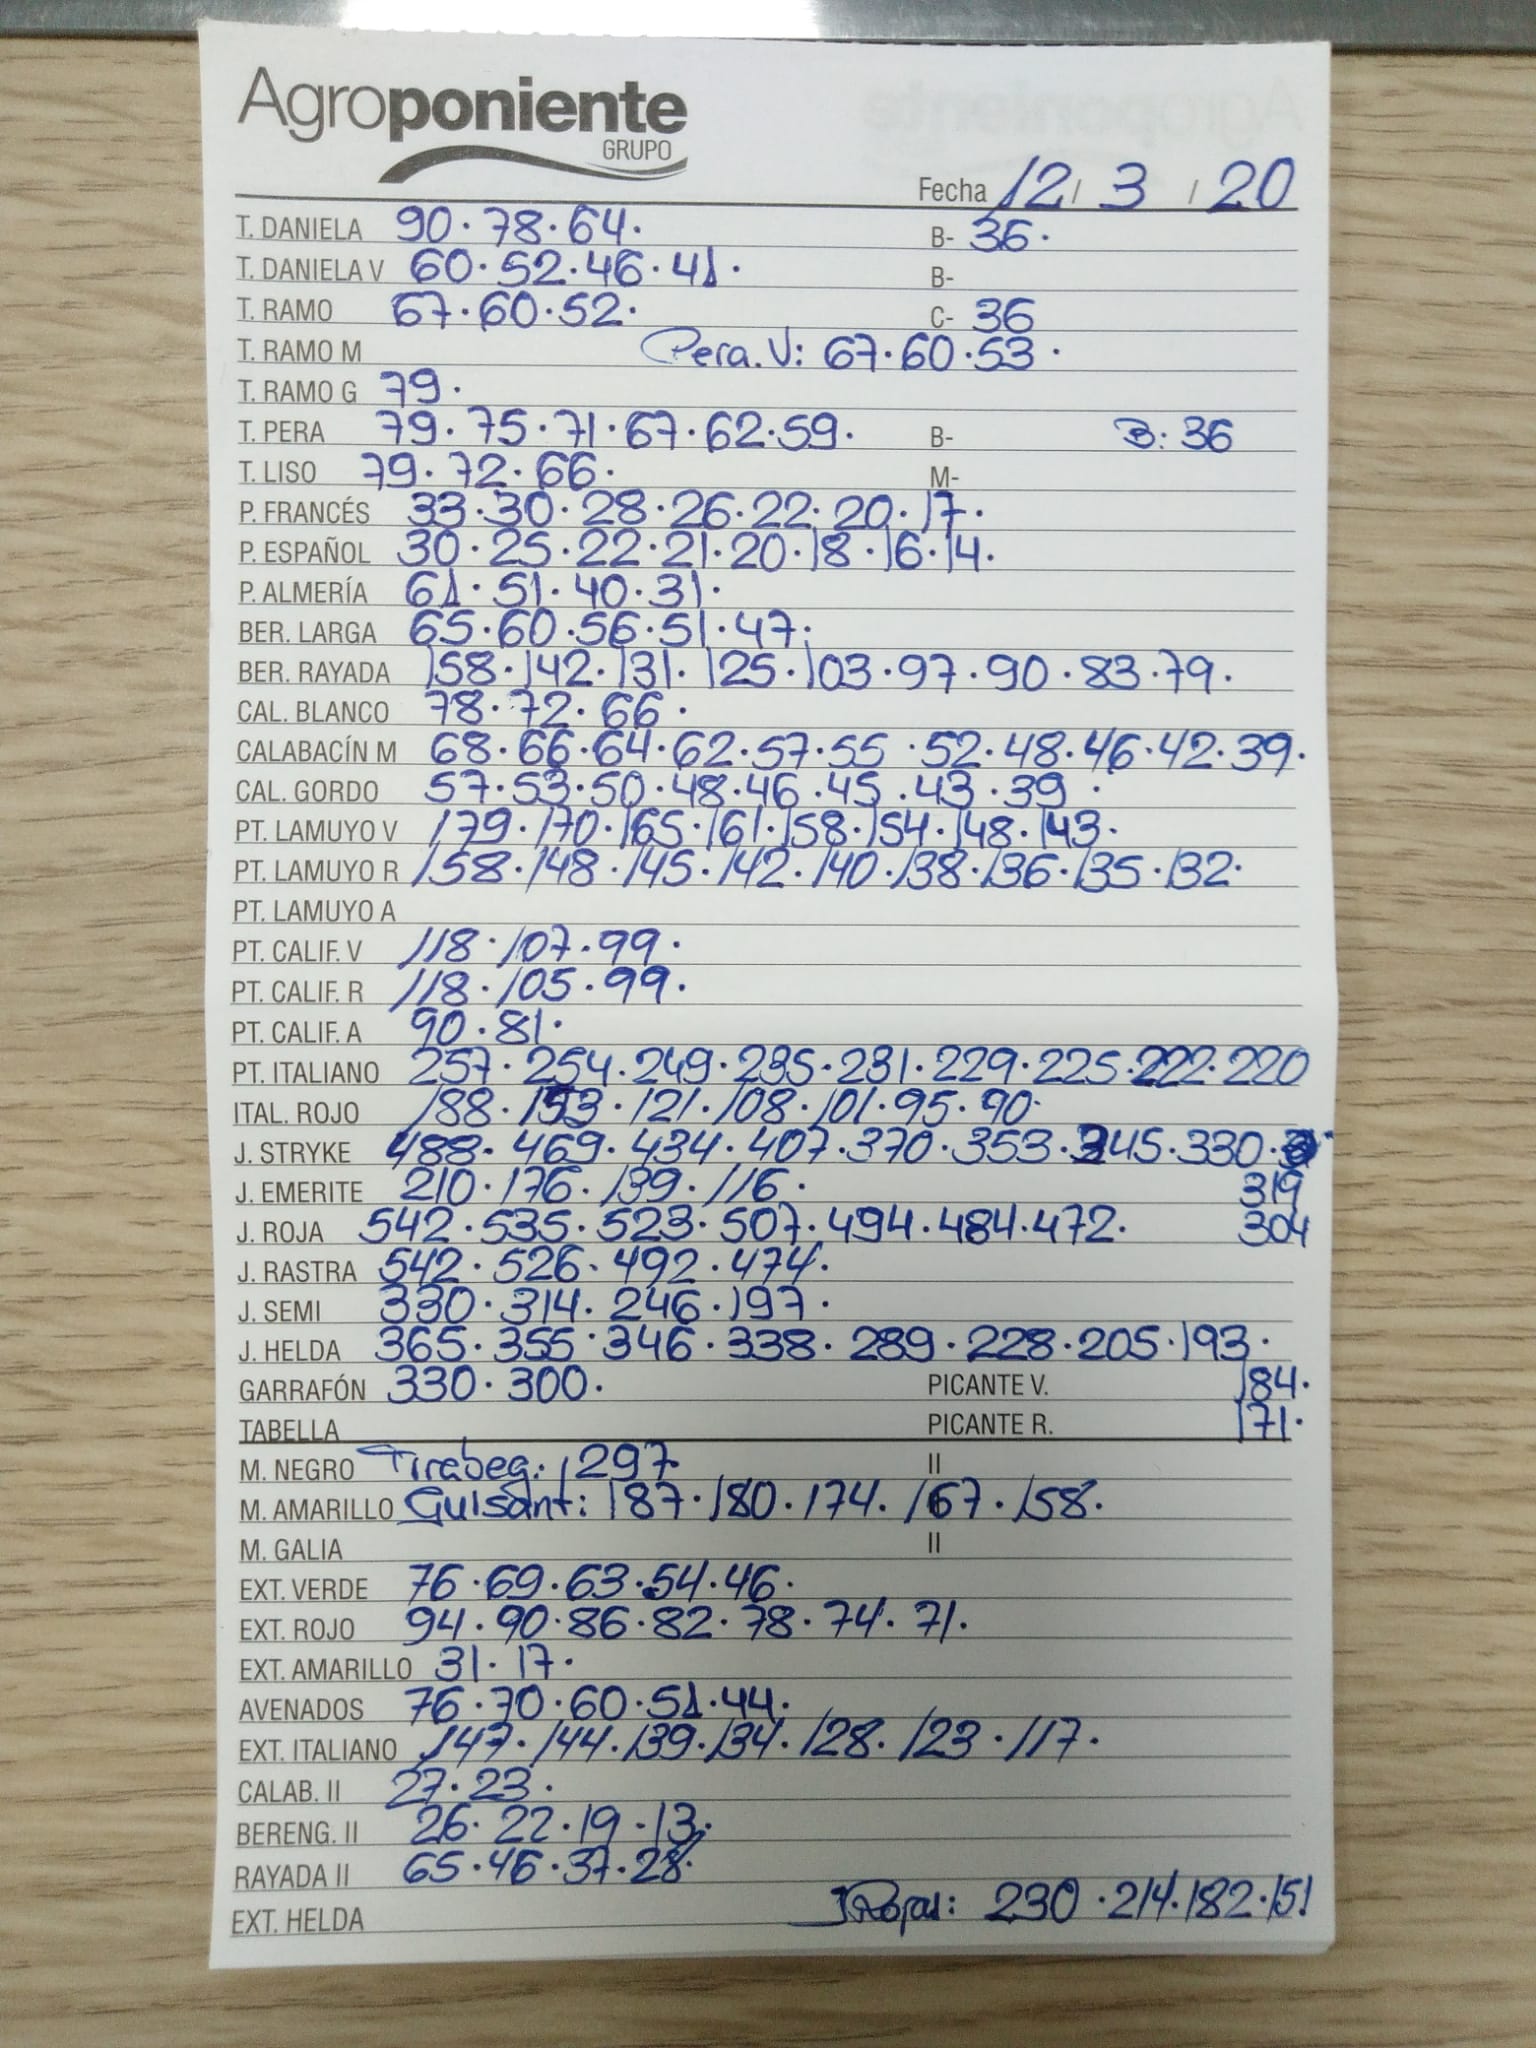 Agroponiente
GRUPO
Fecha 12 / 3 / 20
T. DANIELA 90 · 78 · 64 · B- 36 ·
T. DANIELA V 60 · 52 · 46 · 41 · B-
T. RAMO 67 · 60 · 52 · C- 36
T. RAMO M Pera. V: 67 · 60 · 53 ·
T. RAMO G 79 ·
T. PERA 79 · 75 · 71 · 67 · 62 · 59 · B- B: 36
T. LISO 79 · 72 · 66 · M-
P. FRANCÉS 33 · 30 · 28 · 26 · 22 · 20 · 17 ·
P. ESPAÑOL 30 · 25 · 22 · 21 · 20 · 18 · 16 · 14 ·
P. ALMERÍA 61 · 51 · 40 · 31 ·
BER. LARGA 65 · 60 · 56 · 51 · 47 ·
BER. RAYADA 158 · 142 · 131 · 125 · 103 · 97 · 90 · 83 · 79 ·
CAL. BLANCO 78 · 72 · 66 ·
CALABACÍN M 68 · 66 · 64 · 62 · 57 · 55 · 52 · 48 · 46 · 42 · 39 ·
CAL. GORDO 57 · 53 · 50 · 48 · 46 · 45 · 43 · 39 ·
PT. LAMUYO V 179 · 170 · 165 · 161 · 158 · 154 · 148 · 143 ·
PT. LAMUYO R 158 · 148 · 145 · 142 · 140 · 138 · 136 · 135 · 132 ·
PT. LAMUYO A
PT. CALIF. V 118 · 107 · 99 ·
PT. CALIF. R 118 · 105 · 99 ·
PT. CALIF. A 90 · 81 ·
PT. ITALIANO 257 · 254 · 249 · 235 · 231 · 229 · 225 · 222 · 220
ITAL. ROJO 188 · 153 · 121 · 108 · 101 · 95 · 90 ·
J. STRYKE 488 · 469 · 434 · 407 · 370 · 353 · 345 · 330 ·
J. EMERITE 210 · 176 · 139 · 116 · 319
J. ROJA 542 · 535 · 523 · 507 · 494 · 484 · 472 · 304
J. RASTRA 542 · 526 · 492 · 474 ·
J. SEMI 330 · 314 · 246 · 197 ·
J. HELDA 365 · 355 · 346 · 338 · 289 · 228 · 205 · 193 ·
GARRAFÓN 330 · 300 · PICANTE V. 184 ·
TABELLA PICANTE R. 171 ·
M. NEGRO Tirabeq: 1297 II
M. AMARILLO Guisant: 187 · 180 · 174 · 167 · 158 ·
M. GALIA II
EXT. VERDE 76 · 69 · 63 · 54 · 46 ·
EXT. ROJO 94 · 90 · 86 · 82 · 78 · 74 · 71 ·
EXT. AMARILLO 31 · 17 ·
AVENADOS 76 · 70 · 60 · 51 · 44 ·
EXT. ITALIANO 147 · 144 · 139 · 134 · 128 · 123 · 117 ·
CALAB. II 27 · 23 ·
BERENG. II 26 · 22 · 19 · 13 ·
RAYADA II 65 · 46 · 37 · 28 ·
EXT. HELDA 230 · 214 · 182 · 151